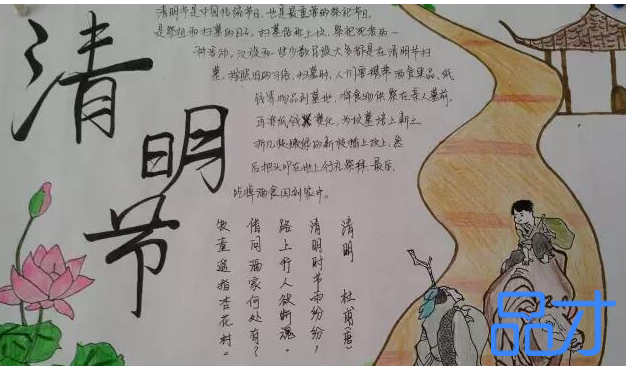 清明节
清明节是中国传统节日,也是最重要的祭祀节日,
是祭祖和扫墓的日子。扫墓俗称上坟,祭祀死者的一
种活动。汉族和一些少数民族大多都是在清明节扫
墓。按照旧的习俗,扫墓时,人们要携带酒食果品、纸
钱等物品到墓地,将食物供祭在亲人墓前,
再将纸钱焚化,为坟墓培上新土
折几枝嫩绿的新枝插上坟上,然
后把头叩在地上行礼祭拜。最后,
吃掉酒食回到家中。
清明 杜甫(唐)
清明时节雨纷纷,
路上行人欲断魂。
借问酒家何处有?
牧童遥指杏花村。
品才